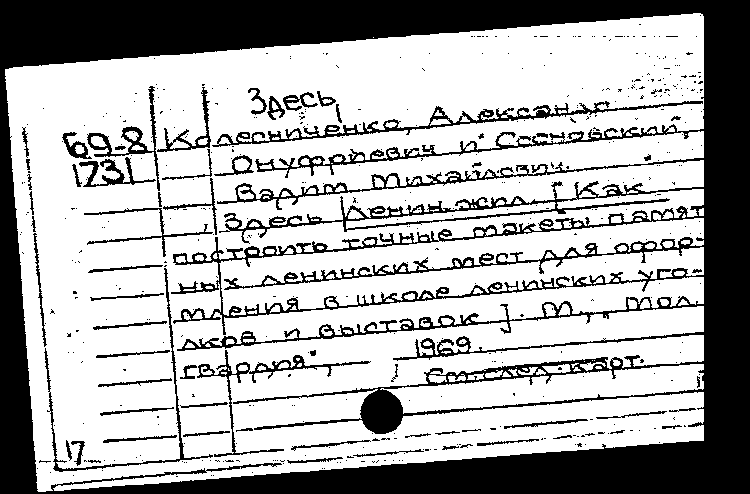 Здесь
69-8 Колесниченко, Александр
1731 Онуфриевич и Сосновский,
Вадим Михайлович.
Здесь Ленин жил. [Как
построить точные макеты памят
ных ленинских мест для офор-
мления в школе ленинских уго-
лков и выставок]. М., „Мол.
гвардия",
1969.
См. след. карт.
17